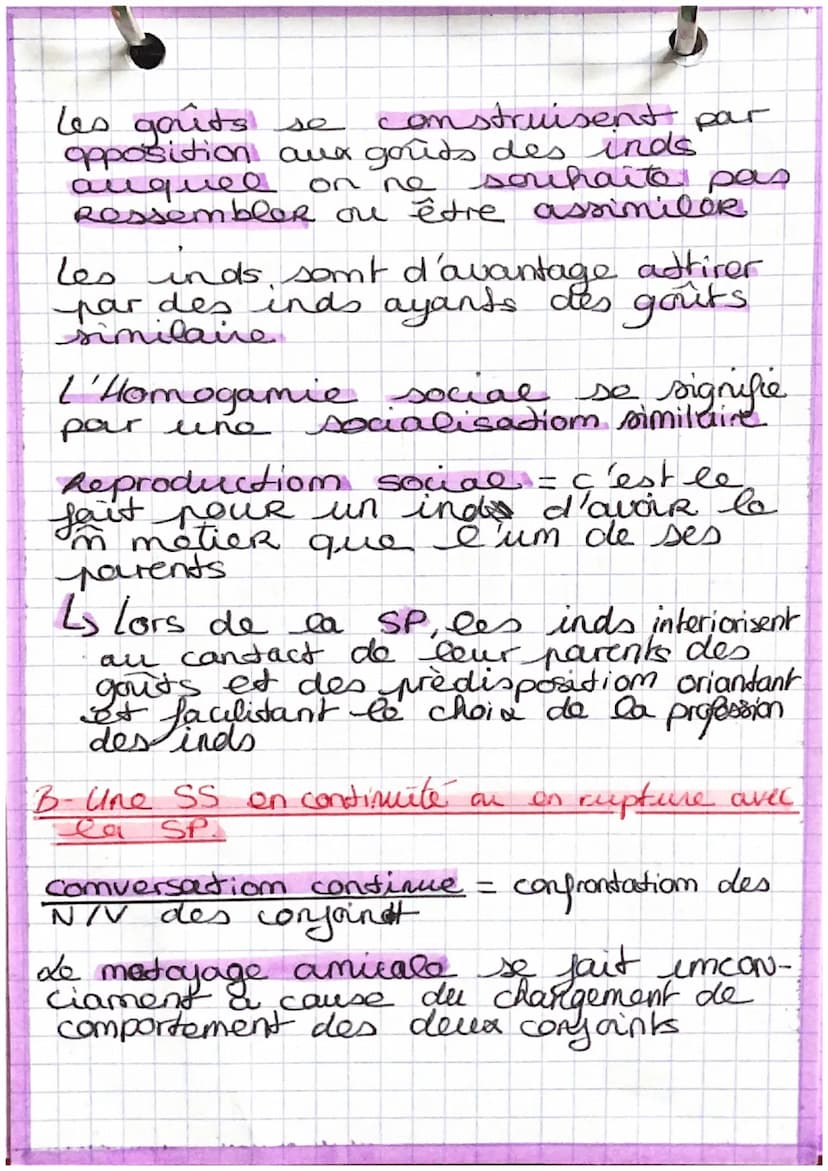 Les goûts se construisent par
opposition aux goûts des inds
auquel on ne souhaite pas
ressembler ou être assimiler
Les inds sont d'avantage attirer
par des inds ayants des goûts
similaire
L'Homogamie sociale se signifie
par une socialisation similaire
Reproduction sociale = c'est le
fait pour un inds d'avoir le
m̂ métier que l'un de ses
parents
↳ Lors de la SP, les inds interiorisent
au contact de leur parents des
goûts et des prèdisposition oriantant
et facilitant le choix de la profession
des inds
B- Une SS en continuité ou en rupture avec
la SP.
conversation continue = confrontation des
N/V des conjoint
Le metoyage amicale se fait imcon-
ciament à cause du changement de
comportement des deux conjoints